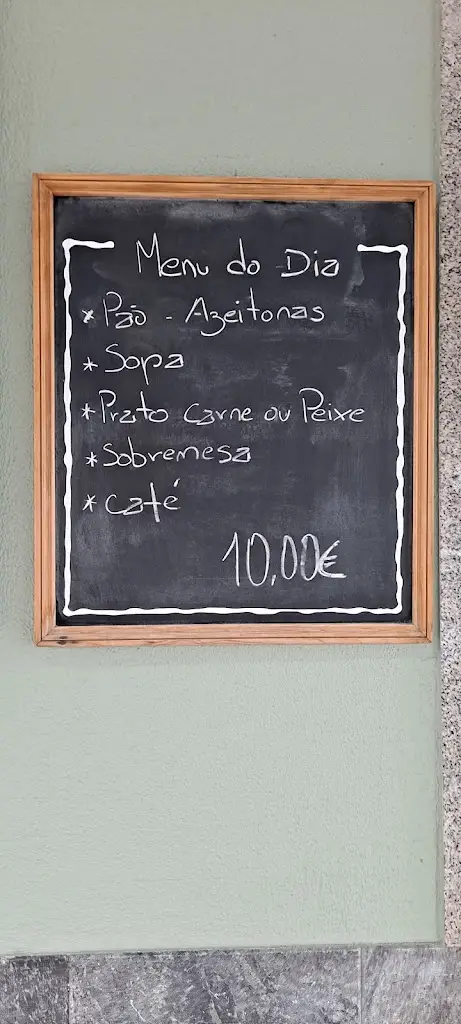 Menu do Dia
* Pão - Azeitonas
* Sopa
* Prato carne ou Peixe
* Sobremesa
* café
10,00€